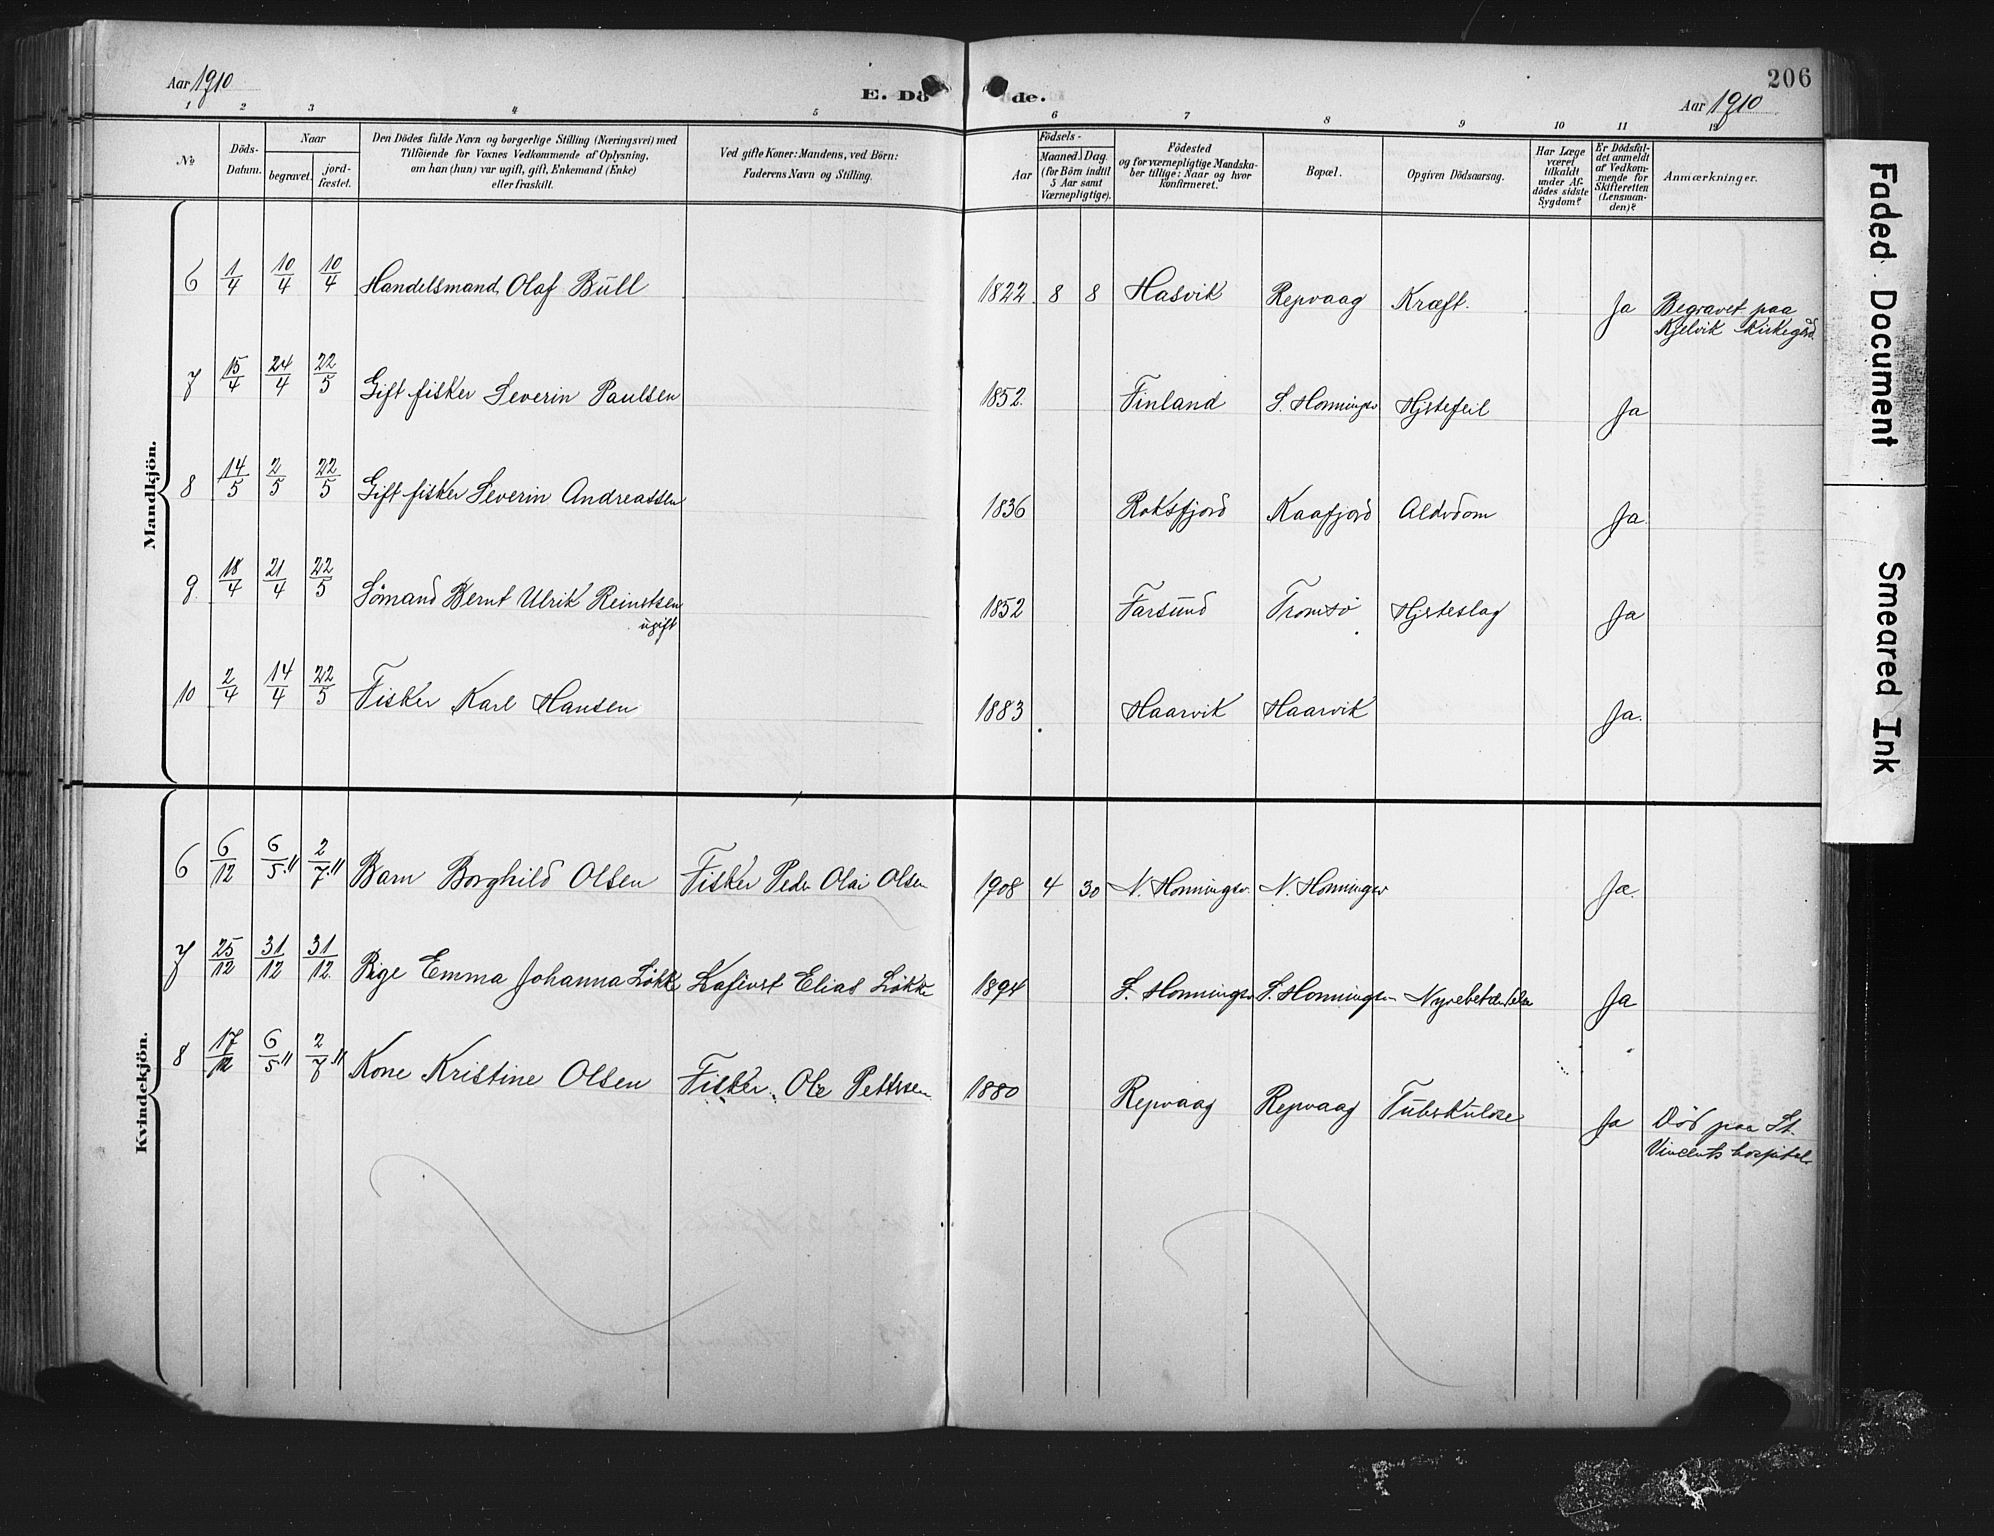 Aar 1910
E. Döde.
206
Aar 1910
1 2 3 4 5 6 7 8 9 10 11 12
No
Döds-Datum.
Naar
begravet.
jord-fæstet.
Den Dödes fulde Navn og borgerlige Stilling (Næringsvei) med
Tilföiende for Voxnes Vedkommende af Oplysning,
om han (hun) var ugift, gift, Enkemand (Enke)
eller fraskilt.
Ved gifte Koner: Mandens, ved Börn:
Faderens Navn og Stilling.
Födsels-
Aar
Maaned. Dag.
(for Börn indtil
5 Aar samt
Værnepligtige).
Födested
og for værnepligtige Mandska-
ber tillige: Naar og hvor
Konfirmeret.
Bopæl.
Opgiven Dödsaarsag.
Har Læge
været
tilkaldt
under Af-
dödes sidste
Sygdom?
Er Dödsfal-
det anmeldt
af Vedkom-
mende for
Skifteretten
(Lensman-
den)?
Anmærkninger.
Mandkjön.
6 1/4 10/4 10/4 Handelsmand Olaf Bull 1822 8 8 Hasvik Repvaag Kræft. Ja Begravet paa
Kjelvik Kirkegård.
7 15/4 24/4 22/5 Gift fisker Severin Paulsen 1852 Finland S. Honningsv Hjertefeil Ja
8 14/5 2/5 22/5 Gift fisker Severin Andreassen 1836 Kaafjord Alderdom Ja
9 18/4 21/4 22/5 Sömand Bernt Ulrik Reinertsen 1852 Farsund Tromsö Hjerteslag Ja
ugift
10 2/4 14/4 22/5 Fisker Karl Hansen 1883 Haarvik Haarvik Ja.
Kvindekjön.
6 6/12 6/5 11 2/7 11 Barn Borghild Olsen Fisker Peder Olai Olsen 1908 4 30 N. Honningsv. N. Honningsv Ja.
7 25/12 31/12 31/12 Pige Emma Johanna Lökke Elias Lökke 1894 S. Honningsv S. Honningsv Nyrebetændelse Ja
8 17/12 6/5 11 2/7 11 Kone Kristine Olsen Fisker Ole Pettersen 1880 Repvaag Repvaag Tuberkulose Ja Död paa St.
Vincents hospital
Faded Document
Smeared Ink